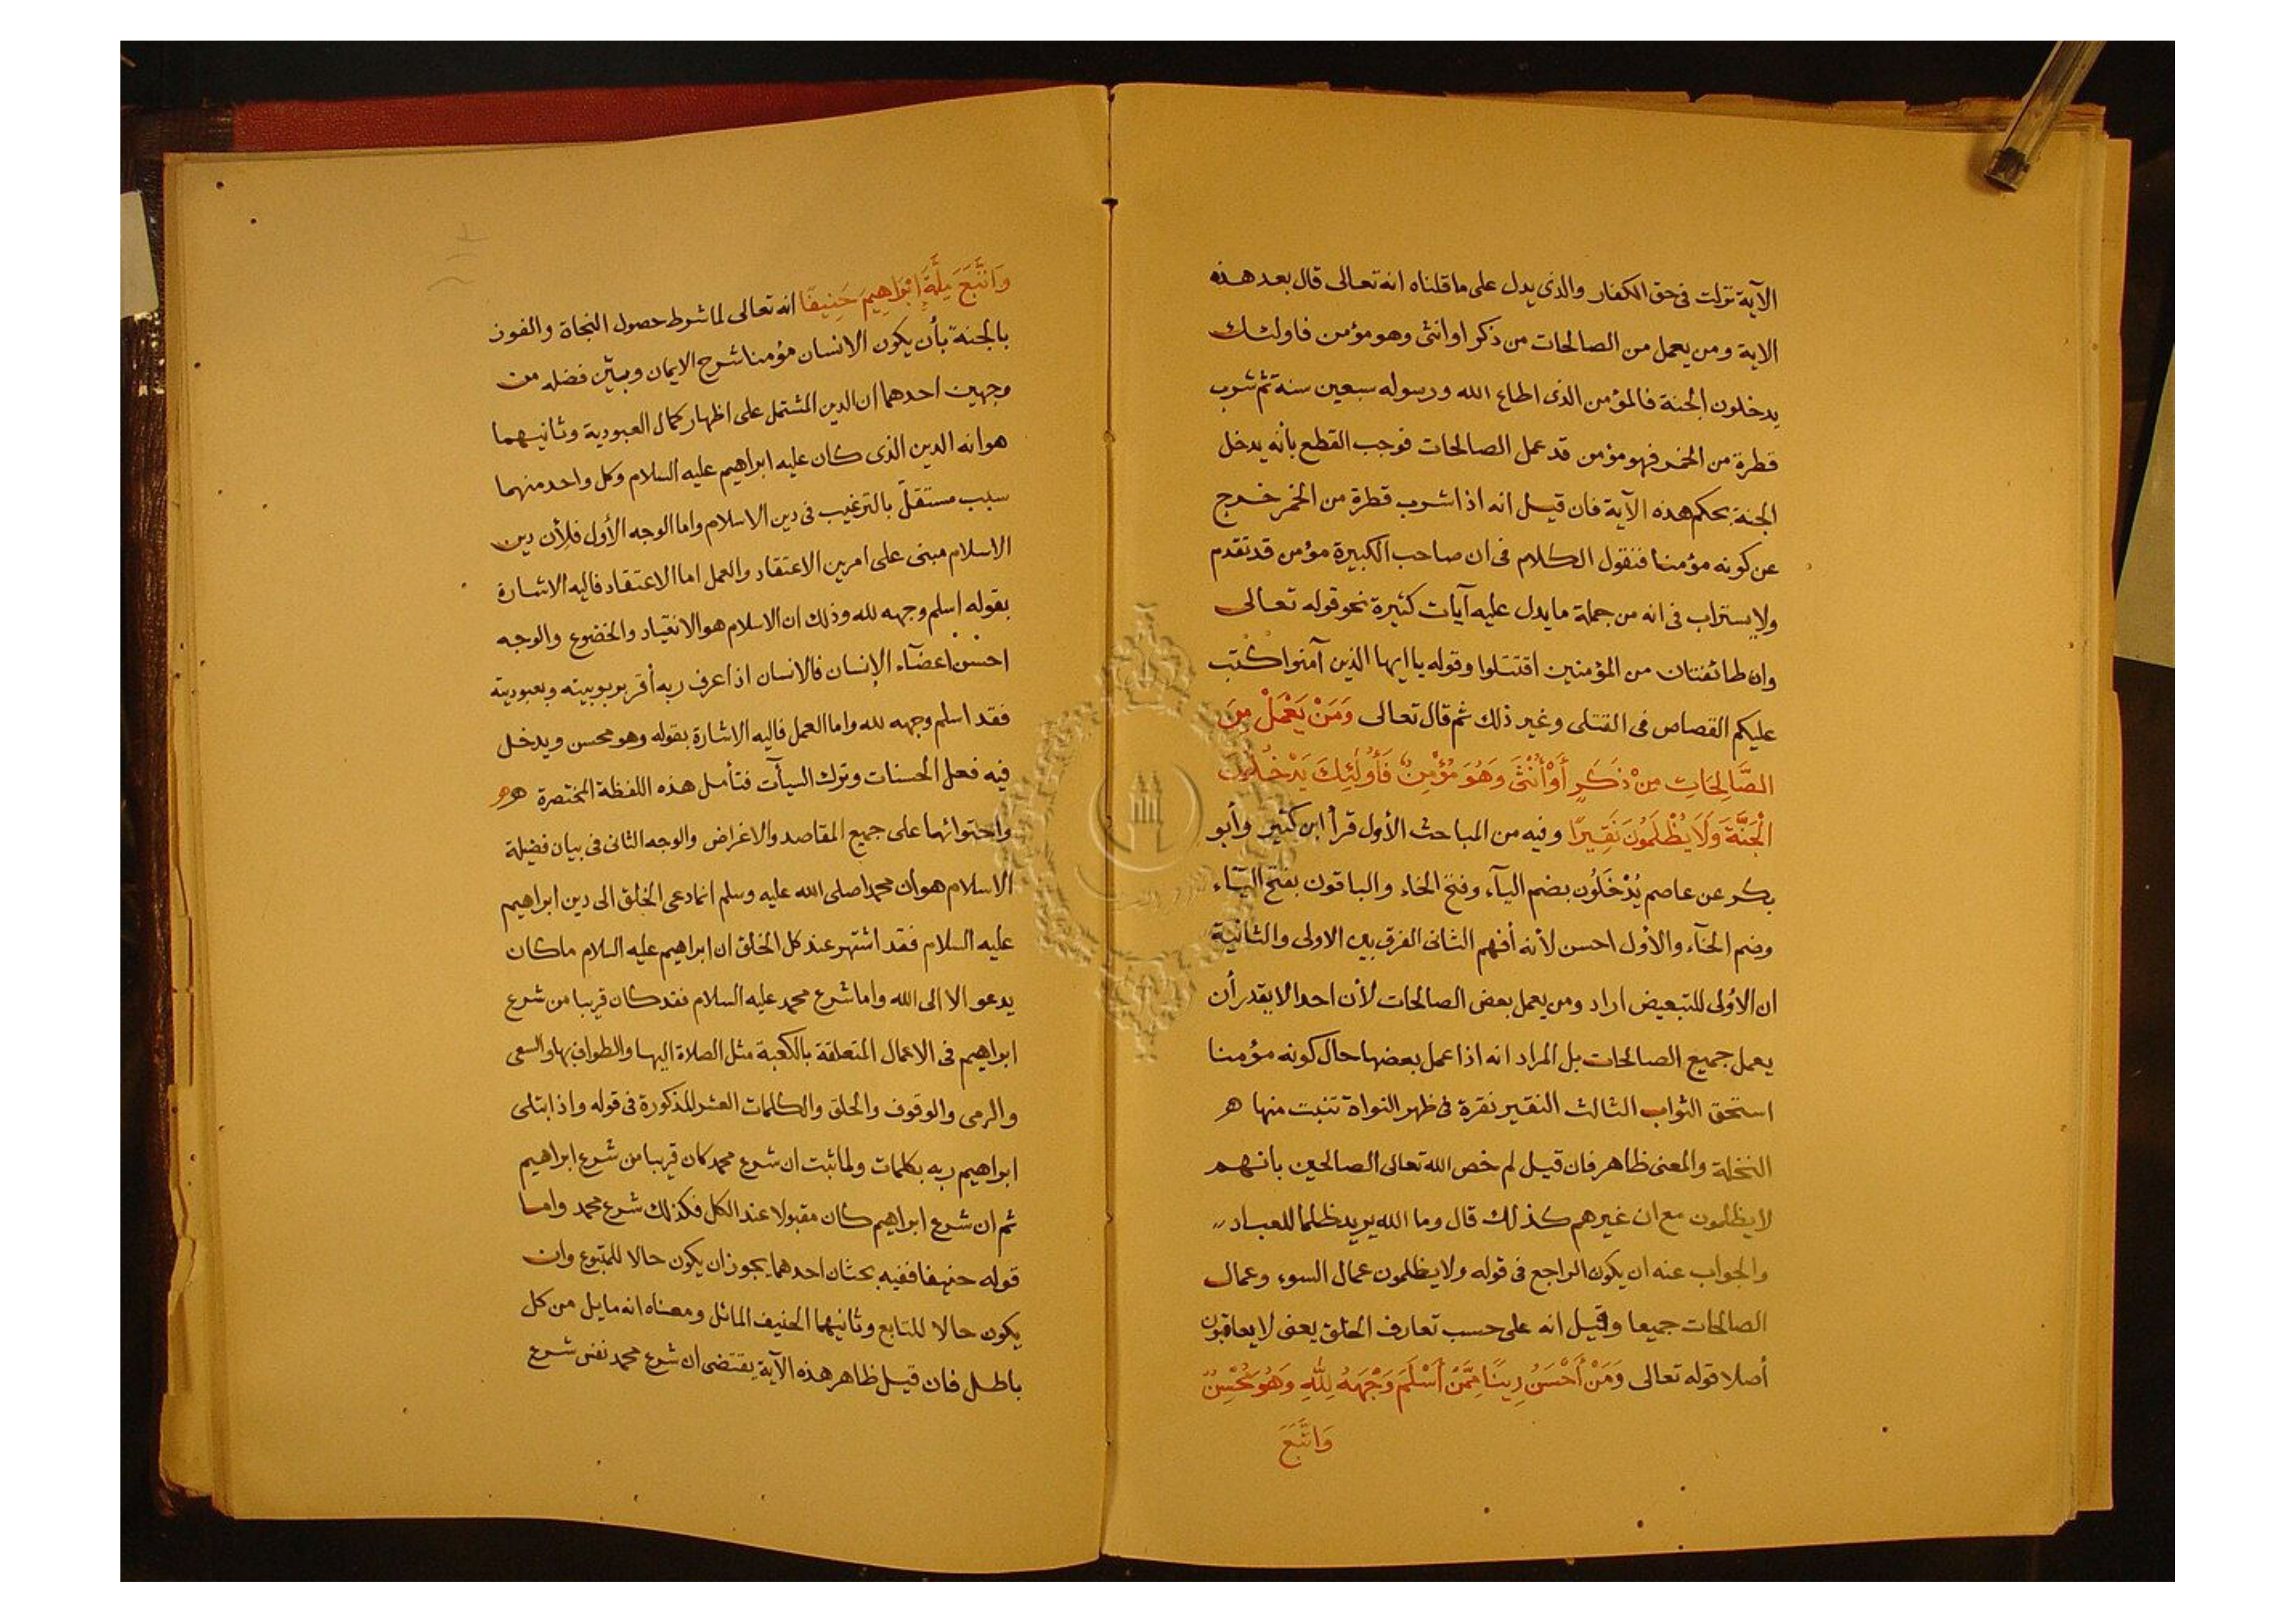 الآية نزلت فى حق الكفار والذى يدل على ما قلناه انه تعالى قال بعد هذه
الاية ومن يعمل من الصالحات من ذكر او انثى وهو مؤمن فاولئك
يدخلون الجنة فالمؤمن الذى اطاع الله ورسوله سبعين سنة ثم شرب
قطرة من الخمر فهو مؤمن قد عمل الصالحات فوجب القطع بأنه يدخل
الجنة بحكم هذه الآية فان قيل انه اذا شرب قطرة من الخمر خرج
عن كونه مؤمنا فنقول الكلام فى ان صاحب الكبيرة مؤمن قد تقدم
ولا يستراب فى انه من جملة ما يدل عليه آيات كثيرة نحو قوله تعالى
وان طائفتان من المؤمنين اقتتلوا وقوله يا ايها الذين آمنوا كُتب
عليكم القصاص فى القتلى وغير ذلك ثم قال تعالى وَمَنْ يَعْمَلْ مِنَ
الصَّالِحَاتِ مِنْ ذَكَرٍ أَوْ أُنْثَى وَهُوَ مُؤْمِنٌ فَأُولَٰئِكَ يَدْخُلُونَ
الْجَنَّةَ وَلَا يُظْلَمُونَ نَقِيرًا وفيه من المباحث الأول قرأ ابن كثير وأبو
بكر عن عاصم يُدْخَلُون بضم اليآء وفتح الخاء والباقون بفتح اليآء
وضم الخآء والاول احسن لأنه أفهم الثانى الفرق بين الاولى والثانية
ان الاولى للتبعيض اراد ومن يعمل بعض الصالحات لأن احدا لا يقدر أن
يعمل جميع الصالحات بل المراد انه اذا عمل بعضها حال كونه مؤمنا
استحق الثواب الثالث النقير نقرة فى ظهر النواة تنبت منها هر
النخلة والمعنى ظاهر فان قيل لم خص الله تعالى الصالحين بانهم
لا يظلمون مع ان غيرهم كذلك قال وما الله يريد ظلما للعباد
والجواب عنه ان يكون الراجع فى قوله ولا يظلمون عمال السوء وعمال
الصالحات جميعا وقيل انه على حسب تعارف الخلق يعنى لا يعاقبون
أصلا قوله تعالى وَمَنْ أَحْسَنُ دِينًا مِمَّنْ أَسْلَمَ وَجْهَهُ لِلّٰهِ وَهُوَ مُحْسِنٌ
وَاتَّبَعَ
وَاتَّبَعَ مِلَّةَ إِبْرَاهِيمَ حَنِيفًا انه تعالى لما شرط حصول النجاة والفوز
بالجنة بأن يكون الانسان مؤمنا شرح الايمان وبيّن فضله من
وجهين احدهما ان الدين المشتمل على اظهار كمال العبودية وثانيهما
هو انه الدين الذى كان عليه ابراهيم عليه السلام وكل واحد منهما
سبب مستقلّ بالترغيب فى دين الاسلام واما الوجه الأول فلأن دين
الاسلام مبنى على امرين الاعتقاد والعمل اما الاعتقاد فاليه الاشارة
بقوله اسلم وجهه لله وذلك ان الاسلام هو الانقياد والخضوع والوجه
احسن اعضآء الإنسان فالانسان اذا عرف ربه أقر بربوبيته وبعبوديته
فقد اسلم وجهه لله واما العمل فاليه الاشارة بقوله وهو محسن ويدخل
فيه فعل الحسنات وترك السيآت فتأمل هذه اللفظة المختصرة هر
واحتوائها على جميع المقاصد والاغراض والوجه الثانى فى بيان فضيلة
الاسلام هو أن محمدا صلى الله عليه وسلم انما دعى الخلق الى دين ابراهيم
عليه السلام فقد اشتهر عند كل الخلق ان ابراهيم عليه السلام ما كان
يدعو الا الى الله واما شرع محمد عليه السلام فقد كان قريبا من شرع
ابراهيم فى الاعمال المتعلقة بالكعبة مثل الصلاة اليها والطواف بها والسعى
والرمى والوقوف والحلق والكلمات العشر المذكورة فى قوله واذ ابتلى
ابراهيم ربه بكلمات ولما ثبت ان شرع محمد كان قريبا من شرع ابراهيم
ثم ان شرع ابراهيم كان مقبولا عند الكل فكذلك شرع محمد واما
قوله حنيفا ففيه بحثان احدهما يجوز ان يكون حالا للمتبوع وان
يكون حالا للتابع وثانيهما الحنيف المائل ومعناه انه مايل من كل
باطل فان قيل ظاهر هذه الآية يقتضى ان شرع محمد نفس شرع